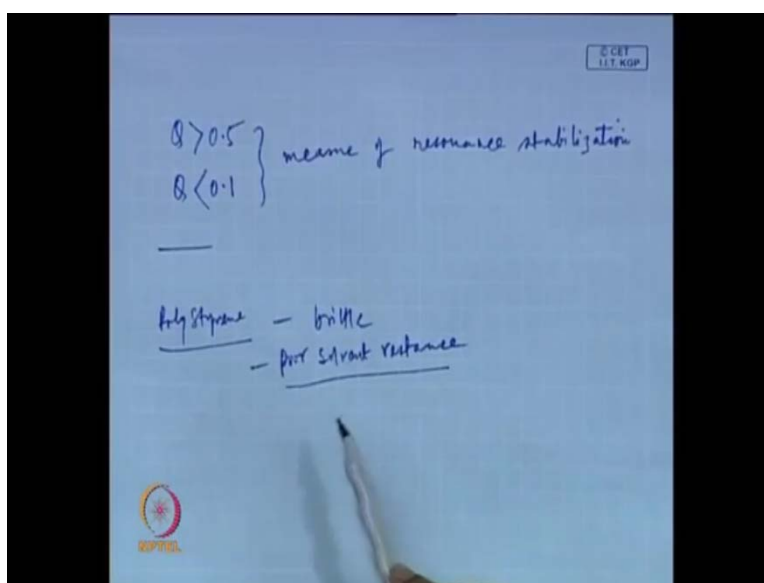 © CET
I.I.T. KGP
Q > 0.5
Q < 0.1 } measure of resonance stabilization
Polystyrene - brittle
- poor solvent resistance
NPTEL